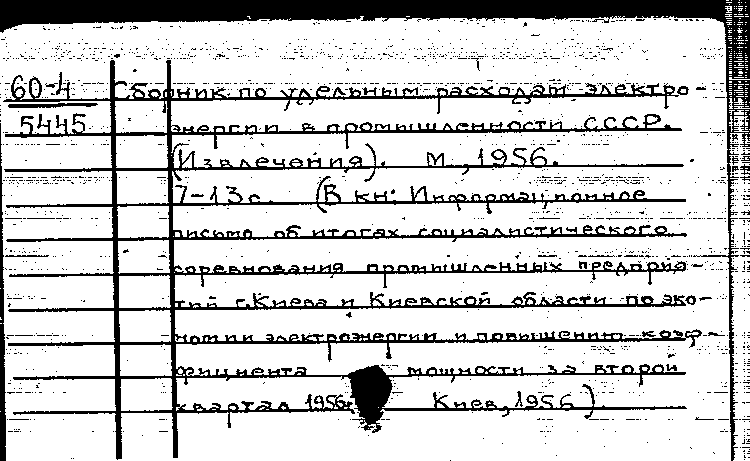 60-4
5445
Сборник по удельным расходам электро-
энергии в промышленности СССР.
(Извлечения). М., 1956.
7-13с. (В кн: Информационное
письмо об итогах социалистического
соревнования промышленных предприя-
тий г.Киева и Киевской области по эко-
номии электроэнергии и повышению коэф-
фициента мощности за второй
квартал 1956г. Киев, 1956)